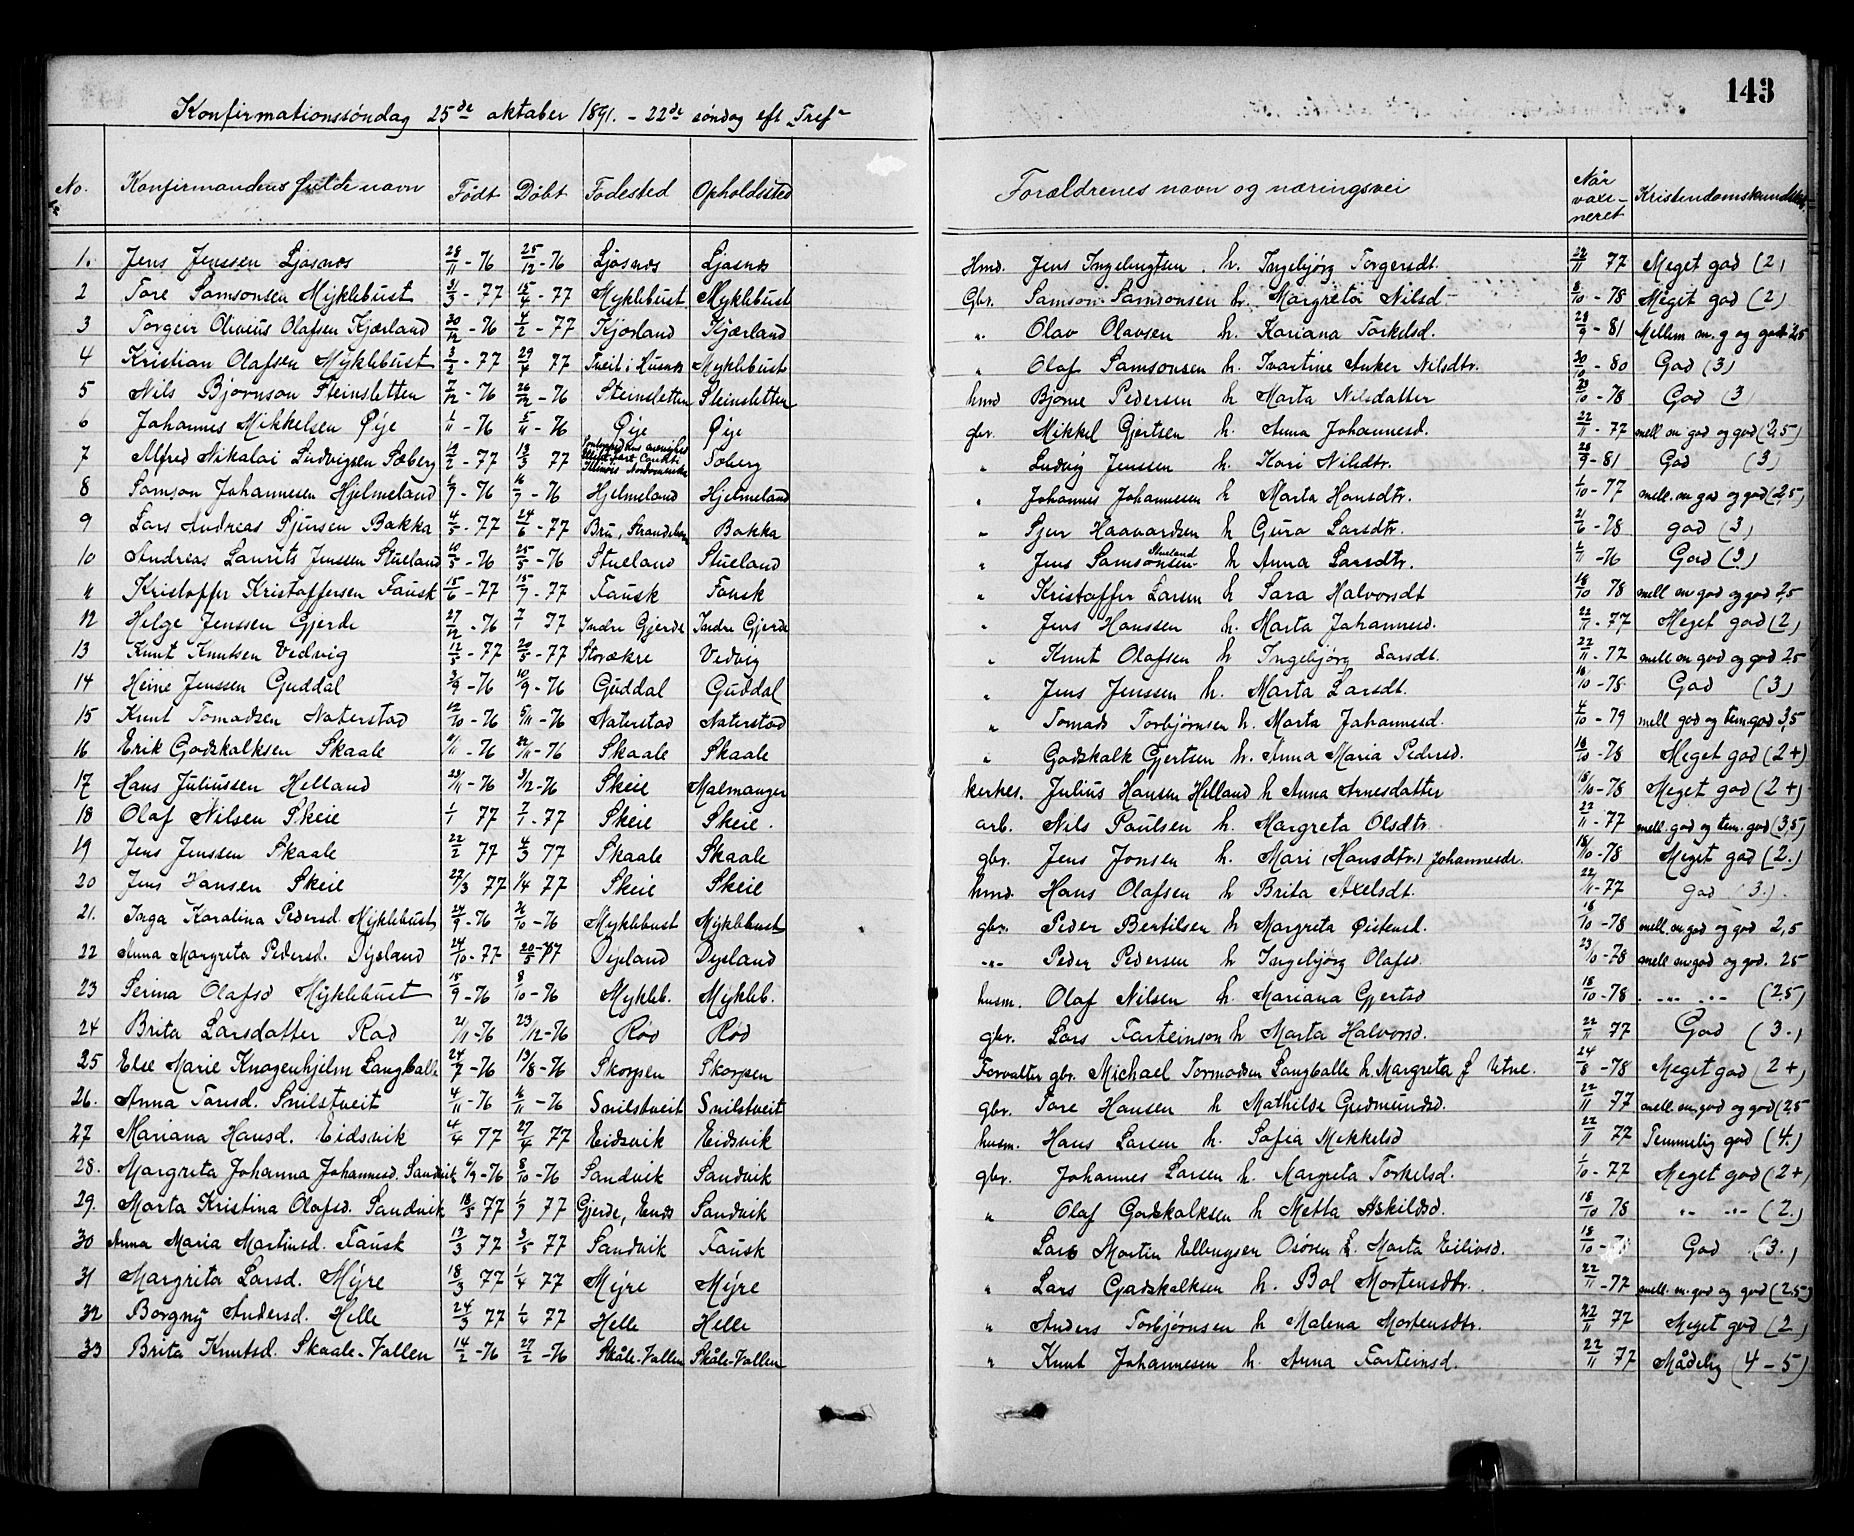 143
Konfirmationssöndag 25de oktober 1891. - 22de söndag eft „Tref“
No. Konfirmandens fulde navn Födt Döbt Födested Opholdssted Forældrenes navn og næringsvei Når vaxineret Kristendomskundskab.
1. Jens Jenssen Ljosnes 28/11 - 76 25/12 - 76 Ljosnes Ljosnes Hmd. Jens h. Ingebjörg Torgersdt. 22/11 77 Meget god (2)
2 Tore Samsonsen Myklebust 31/3 - 77 15/4 - 77 Myklebust Myklebust Gbr. Samson Samsonsen h. Margreta Nilsd 8/10 - 78 Meget god (2)
3 Torgeir Oliveus Olafsen Kjærland 30/12 - 76 4/2 - 77 Kjærland Kjærland " Olav Olavsen h. Kariana Torkelsd. 28/9 - 81 Mellem m. g og god 2,5
4 Kristian Olafsen Myklebust 3/2 - 77 29/4 77 Tveit i Husnes Myklebust " Olaf Samsonsen h. Anker Nilsdtr. - 80 God (3)
5 Nils Bjornson Steinsletten 7/12 - 76 26/12 - 76 Steinsletten Steinsletten hmd Bjorne Pedersen h Marta Nilsdatter 23/10 - 78 God (3
6 Johannes Mikkelsen Øije 1/11 - 76 5/11 - 76 Øije Øije gbr. Mikkel Gjertsen h. Anna Johannesd. 22/11 - 77 mell m god og god (2,5)
7 Alfred Nikolai Ludvigsen Soberg - 77 77 Soberg " Ludvig Jenssen h Kari Nilsdtr. 28/9 - 81 God (3)
8 Samson Johannesen Hjelmeland - 76 16/7 - 76 Hjelmeland Hjelmeland " Johannes Johannesen h Marta Hansdtr. 1/10 - 77 mell. m god og god (2,5)
9 Lars Andreas Sjursen Bakka 4/5 - 77 24/6 - 77 Bru, Bakka " Sjur Haavardsen h Guro Larsdtr. 21/6 - 78 god (3)
10 Andreas Laurits Jenssen Stueland 10/5 - 76 25/5 - 76 Stueland Stueland " Jens Samsonsen Stueland h Anna Larsdtr. 1/11 - 76 God (3)
11 Kristoffer Kristoffersen Fausk 15/6 - 77 15/7 - 77 Fausk Fausk " Kristoffer Larsen h Sara Halvorsdt 18/10 78 mell m god og god 2,5
12 Helge Jenssen Gjerde 27/12 - 76 7/1 77 Indre Gjerde Indre Gjerde " Jens Hanssen h. Marta Johannesd. 22/11 - 77 Meget god (2)
13 Knut Knutsen Vedvig 12/5 - 77 20/5 - 77 Storækre Vedvig " Knut Olafsen h Ingebjörg Larsdt. 22/11 - 77 mell m god og god 2,5
14 Heine Jenssen Guddal 3/9 - 76 10/9 - 76 Guddal Guddal " Jens Jenssen h. Marta Larsdt. 18/10 - 78 God (3)
15 Knut Tomassen Naterstad 12/10 - 76 5/11 - 76 Naterstad Naterstad " Tomas Torbjörnsen h. Marta Johannesd. 4/10 - 79 mell god og tem. god 3,5
16 Erik Godskalksen Skaale - 76 22/11 - 76 Skaale Skaale " Godskalk Gjertsen h. Anna Maria Pedersd. 18/10 - 78 Meget god (2+)
17 Hans Juliussen Helland 23/11 - 76 3/12 - 76 Skeie Malmanger kerkes. Julius Hansen Helland h Anna Arnesdatter 18/10 - 78 Meget god (2+)
18 Olaf Nilsen Skeie 1/1 77 7/1 - 77 Skeie Skeie. arb. Nils Paulsen h. Margreta Olsdtr. 22/11 - 77 mell. god og tem. god (3,5)
19 Jens Jenssen Skaale 22/2 77 4/3 77 Skaale Skaale gbr. Jens Jonsen h. Mari (Hansdtr.) Johannesdr. 18/10 - 78 Meget god (2.)
20 Jens Hansen Skeie 27/3 77 1/4 77 Skeie Skeie hmd. Hans Olafsen h Brita Axelsdt. 22/11 - 77 God (3.)
21. Inga Karolina Pedersd. Myklebust 24/9 - 76 - 76 Myklebust Myklebust gbr. Peder Bertilsen h Margreta Øistensd. 18/10 - 78 mell m god og god 2,5
22 Anna Margreta Pedersd. Dysland 24/10 - 77 20/5 - 77 Dysland Dysland " Peder Pedersen h Ingebjörg Olafsd. 23/10 - 78 mell m god og god. 2,5
23 Serina Olafsd Myklebust 15/9 - 76 8/10 - 76 Mykleb. Mykleb. husm. Olaf Nilsen h. Mariana Gjertsd 18/10 - 78. " " (2,5)
24 Brita Larsdatter Röd 21/11 - 76 23/12 - 76 Röd Röd gbr. Lars Farteinson h Marta Halvorsd. 22/11 77 God (3.)
25 Else Marie Knagenhjelm Langballe 24/7 - 76 13/8 - 76 Skorpen Skorpen Forvalter gbr. Michael Tormodsen Langballe h. Margreta f Utne. 24/8 - 78 Meget god (2+)
26. Anna Toresd. Snilstveit 4/11 - 76 - 76 Snilstveit Snilstveit gbr. Tore Hansen h Mathilde Gudmundsd. 22/11 77 mell m. god og god (2,5
27 Mariana Hansd. Eidsvik 4/4 77 27/4 77 Eidsvik Eidsvik husm. Hans Larsen h. Sofia Mikkelsd 22/11 77 Temmelig god (4.)
28. Margreta Johanna Johannesd. Sandvik 6/9 - 76 8/10 - 76 Sandvik Sandvik gbr. Johannes Larsen h. Margreta Torkelsd. 1/10 - 77 Meget god (2+)
29. Marta Kristina Olafsd. Sandvik 18/5 77 1/7 77 Gjerde, Enæs Sandvik " Olaf Godskalksen h Metta Askildsd. 18/10 78 " " (2.)
30 Anna Maria Martinsd. Fausk 13/3 77 3/5 77 Sandvik Fausk Lars Martin Ellingsen Osören h. Marta Eilivsd. 18/10 - 78 God (3.)
31 Margrita Larsd. Mýre 18/3 77 1/4 77 Mýre Mýre " Lars Godskalksen h. Bol Mortensdtr. 22/11 - 77 mell. m. god og god (2,5)
32 Borgny Andersd. Helle 24/3 77 1/4 77 Helle Helle " Anders Torbjörnsen h Malena Mortensdtr. 22/11 77 Meget god (2)
33 Brita Knutsd. Skaale-Vallen 14/2 - 76 27/2 - 76 Skåle-Vallen Skåle-Vallen " Knut Johannesen h. Anna Farteinsd. 22/11 77 Mådelig (4 - 5)